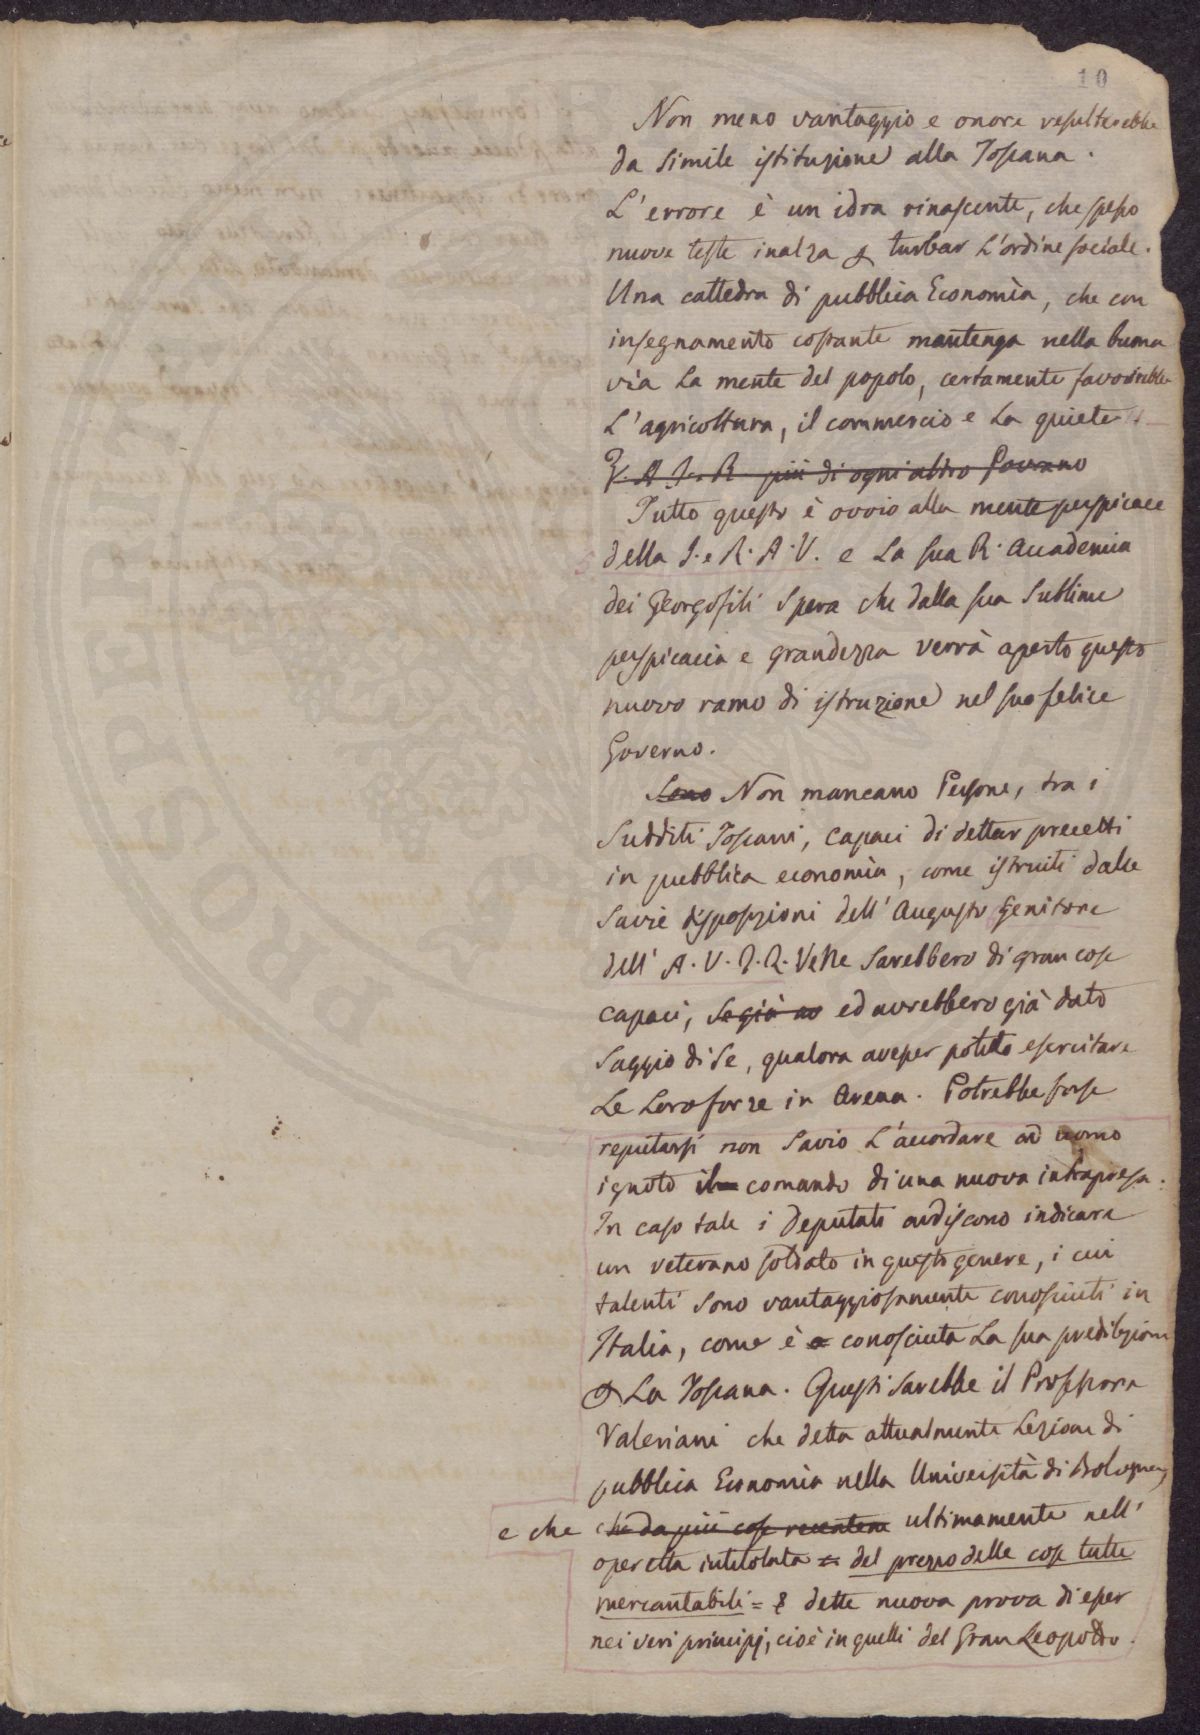 10
Non meno vantaggio e onore resulterebbe
da simile istituzione alla Toscana.
L'errore è un idra rinascente, che spesso
nuove teste inalza turbar L'ordine sociale.
Una cattedra di pubblica Economìa, che con
insegnamento costante mantenga nella buona
via La mente del popolo, certamente favorirebbe
L'agricoltura, il commercio e La quiete
V. A. I. e R. più di ogni altro Sovrano
Tutto questo è ovvio alla mente perspicace
della I. e R. A. V. e La sua R. Accademia
dei Georgofili Spera che dalla sua Sublime
perspicacia e grandezza verrà aperto questo
nuovo ramo di istruzione nel suo felice
Governo.
Sono Non mancano Persone, tra i
Sudditi Toscani, capaci di dettar precetti
in pubblica economìa, come istruiti dalle
Savie disposizioni dell'Augusto Genitore
dell' A. V. I. R. Esse Sarebbero di gran cose
capaci, se già ed avrebbero già dato
Saggio di Se, qualora avesser potuto esercitare
Le Loro forze in Arena. Potrebbe forse
reputarsi non Savio L'accordare ad uomo
ignoto il comando di una nuova intrapresa.
In caso tale i Deputati ardiscono indicare
un veterano soldato in questo genere, i cui
talenti Sono vantaggiosamente conosciuti in
Italia, come è conosciuta La sua predilezione
La Toscana. Questi Sarebbe il Professore
Valeriani che detta attualmente Lezione di
pubblica Economìa nella Università di Bologna,
e che che da più cose ultimamente nell'
operetta intitolata = del prezzo delle cose tutte
mercantabili = dette nuova prova di esser
nei veri principj, cioè in quelli del Gran Leopoldo.